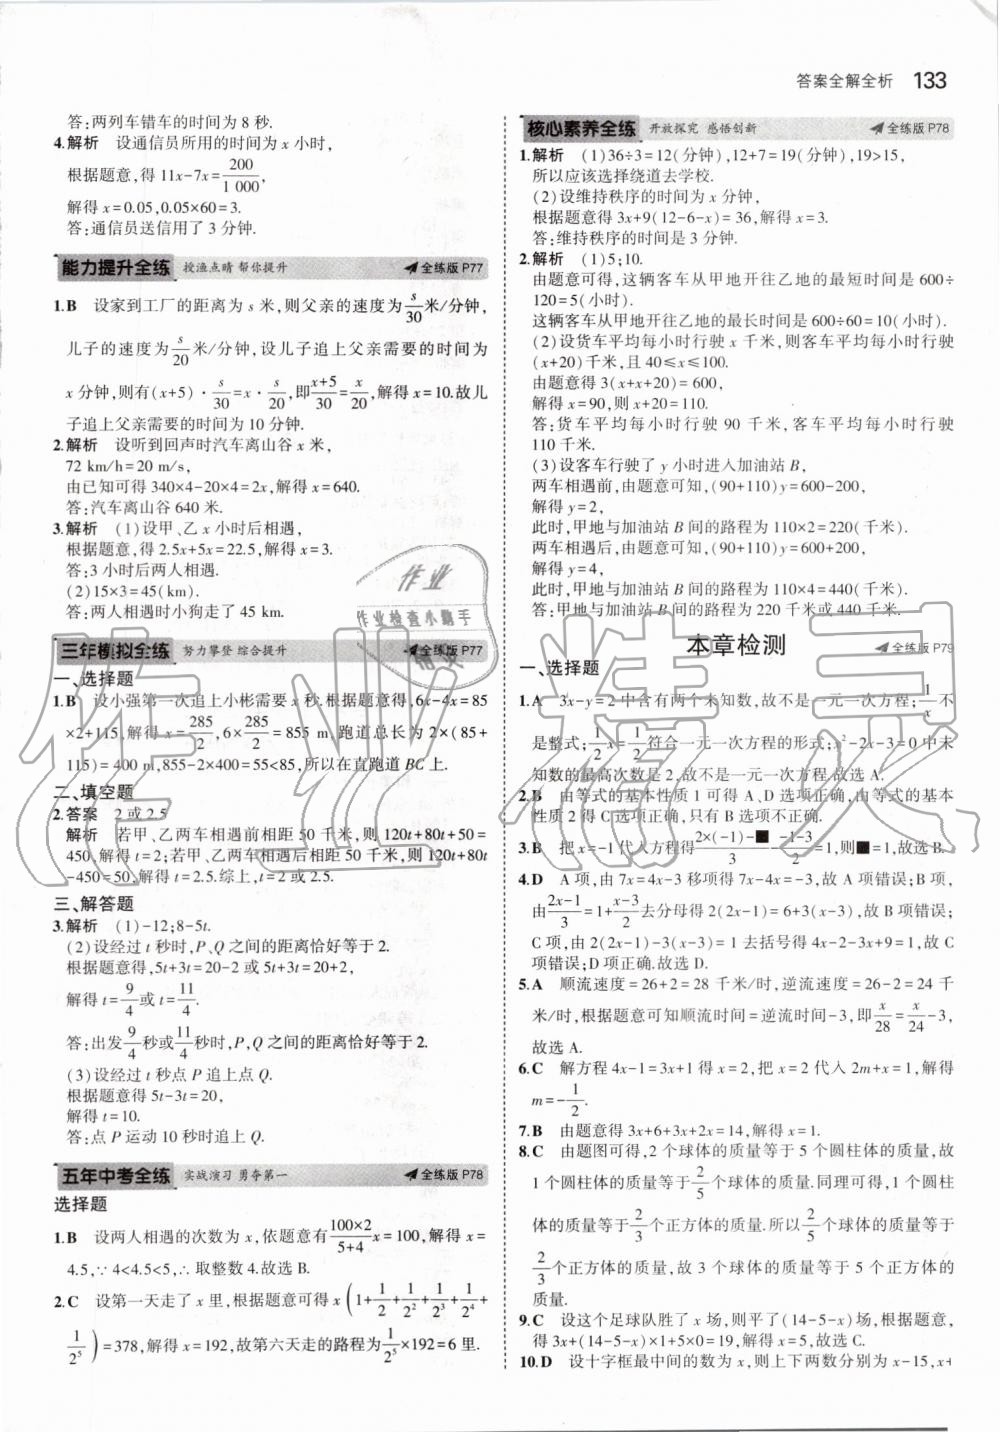 答案全解全析 133
答:两列车错车的时间为 8 秒.
4.解析 设通信员所用的时间为 x 小时,
根据题意,得 11x-7x=200/1 000,
解得 x=0.05,0.05×60=3.
答:通信员送信用了 3 分钟.
能力提升全练 授渔点睛 帮你提升 全练版 P77
1.B 设家到工厂的距离为 s 米,则父亲的速度为 s/30 米/分钟,
儿子的速度为 s/20 米/分钟,设儿子追上父亲需要的时间为
x 分钟,则有(x+5)·s/30=x·s/20,即(x+5)/30=x/20,解得 x=10.故儿
子追上父亲需要的时间为 10 分钟.
2.解析 设听到回声时汽车离山谷 x 米,
72 km/h=20 m/s,
由已知可得 340×4-20×4=2x,解得 x=640.
答:汽车离山谷 640 米.
3.解析 (1)设甲、乙 x 小时后相遇,
根据题意,得 2.5x+5x=22.5,解得 x=3.
答:3 小时后两人相遇.
(2)15×3=45(km).
答:两人相遇时小狗走了 45 km.
三年模拟全练 努力攀登 综合提升 全练版 P77
一、选择题
1.B 设小强第一次追上小彬需要 x 秒.根据题意得,6x-4x=85
×2+115,解得 x=285/2,6×285/2=855 m,跑道总长为 2×(85+
115)=400 m,855-2×400=55<85,所以在直跑道 BC 上.
二、填空题
2.答案 2 或 2.5
解析 若甲、乙两车相遇前相距 50 千米,则 120t+80t+50=
450,解得 t=2;若甲、乙两车相遇后相距 50 千米,则 120t+80t
-450=50,解得 t=2.5.综上,t=2 或 2.5.
三、解答题
3.解析 (1)-12;8-5t.
(2)设经过 t 秒时,P、Q 之间的距离恰好等于 2.
根据题意得,5t+3t=20-2 或 5t+3t=20+2,
解得 t=9/4 或 t=11/4.
答:出发 9/4 秒或 11/4 秒时,P,Q 之间的距离恰好等于 2.
(3)设经过 t 秒点 P 追上点 Q.
根据题意得 5t-3t=20,
解得 t=10.
答:点 P 运动 10 秒时追上 Q.
五年中考全练 实战演习 勇夺第一 全练版 P78
选择题
1.B 设两人相遇的次数为 x,依题意有(100×2)/(5+4)x=100,解得 x=
4.5,∵4<4.5<5,∴取整数 4.故选 B.
2.C 设第一天走了 x 里,根据题意可得 x(1+1/2+1/2²+1/2³+1/2⁴+
1/2⁵)=378,解得 x=192,故第六天走的路程为 1/2⁵×192=6 里.
核心素养全练 开放探究 感悟创新 全练版 P78
1.解析 (1)36÷3=12(分钟),12+7=19(分钟),19>15,
所以应该选择绕道去学校.
(2)设维持秩序的时间为 x 分钟,
根据题意得 3x+9(12-6-x)=36,解得 x=3.
答:维持秩序的时间为 3 分钟.
2.解析 (1)5;10.
由题意可得,这辆客车从甲地开往乙地的最短时间是 600÷
120=5(小时).
这辆客车从甲地开往乙地的最长时间是 600÷60=10(小时).
(2)设货车平均每小时行驶 x 千米,则客车平均每小时行驶
(x+20)千米,且 40≤x≤100.
由题意得 3(x+x+20)=600,
解得 x=90,则 x+20=110.
答:货车平均每小时行驶 90 千米,客车平均每小时行驶
110 千米.
(3)设客车行驶了 y 小时进入加油站 B,
两车相遇前,由题意可知,(90+110)y=600-200,
解得 y=2,
此时,甲地与加油站 B 间的路程为 110×2=220(千米).
两车相遇后,由题意可知,(90+110)y=600+200,
解得 y=4,
此时,甲地与加油站 B 间的路程为 110×4=440(千米).
答:甲地与加油站 B 间的路程为 220 千米或 440 千米.
本章检测 全练版 P79
一、选择题
1.A 3x-y=2 中含有两个未知数,故不是一元一次方程;1/x 不
是整式;1/2x=1/2 符合一元一次方程的形式;x²-2x-3=0 中未
知数的最高次数是 2,故不是一元一次方程.故选 A.
2.B 由等式的基本性质 1 可得 A、D 选项正确,由等式的基本
性质 2 得 C 选项正确,只有 B 选项不正确.
3.B 把 x=-1 代入方程得(2×(-1)-■)/3-(-1-3)/2=1,则■=1,故选 B.
4.D A 项,由 7x=4x-3 移项得 7x-4x=-3,故 A 项错误;B 项,
由(2x-1)/3=1+(x-3)/2 去分母得 2(2x-1)=6+3(x-3),故 B 项错误;
C 项,由 2(2x-1)-3(x-3)=1 去括号得 4x-2-3x+9=1,故 C
项错误;D 项正确.故选 D.
5.A 顺流速度=26+2=28 千米/时,逆流速度=26-2=24 千
米/时,根据题意可知顺流时间=逆流时间-3,即 x/28=x/24-3,
故选 A.
6.C 解方程 4x-1=3x+1 得 x=2,把 x=2 代入 2m+x=1,解得
m=-1/2.
7.B 由题意得 3x+6+3x+2x=14,解得 x=1.
8.C 由题图可得,2 个球体的质量等于 5 个圆柱体的质量,故
1 个圆柱体的质量等于 2/5 个球体的质量.同理可得,1 个圆柱
体的质量等于 2/3 个正方体的质量.所以 2/5 个球体的质量等于
2/3 个正方体的质量,故 3 个球体的质量等于 5 个正方体的
质量.
9.C 设这个足球队胜了 x 场,则平了(14-5-x)场,根据题意,
得 3x+(14-5-x)×1+5×0=19,解得 x=5,故选 C.
10.D 设十字框最中间的数为 x,则上下两数分别为 x-15,x+
作业
作业检查小帮手
精灵
作业精灵